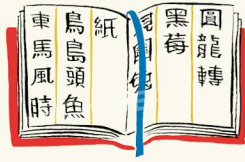 圓龍轉
黑莓
紙
鳥島頭魚
車馬風時